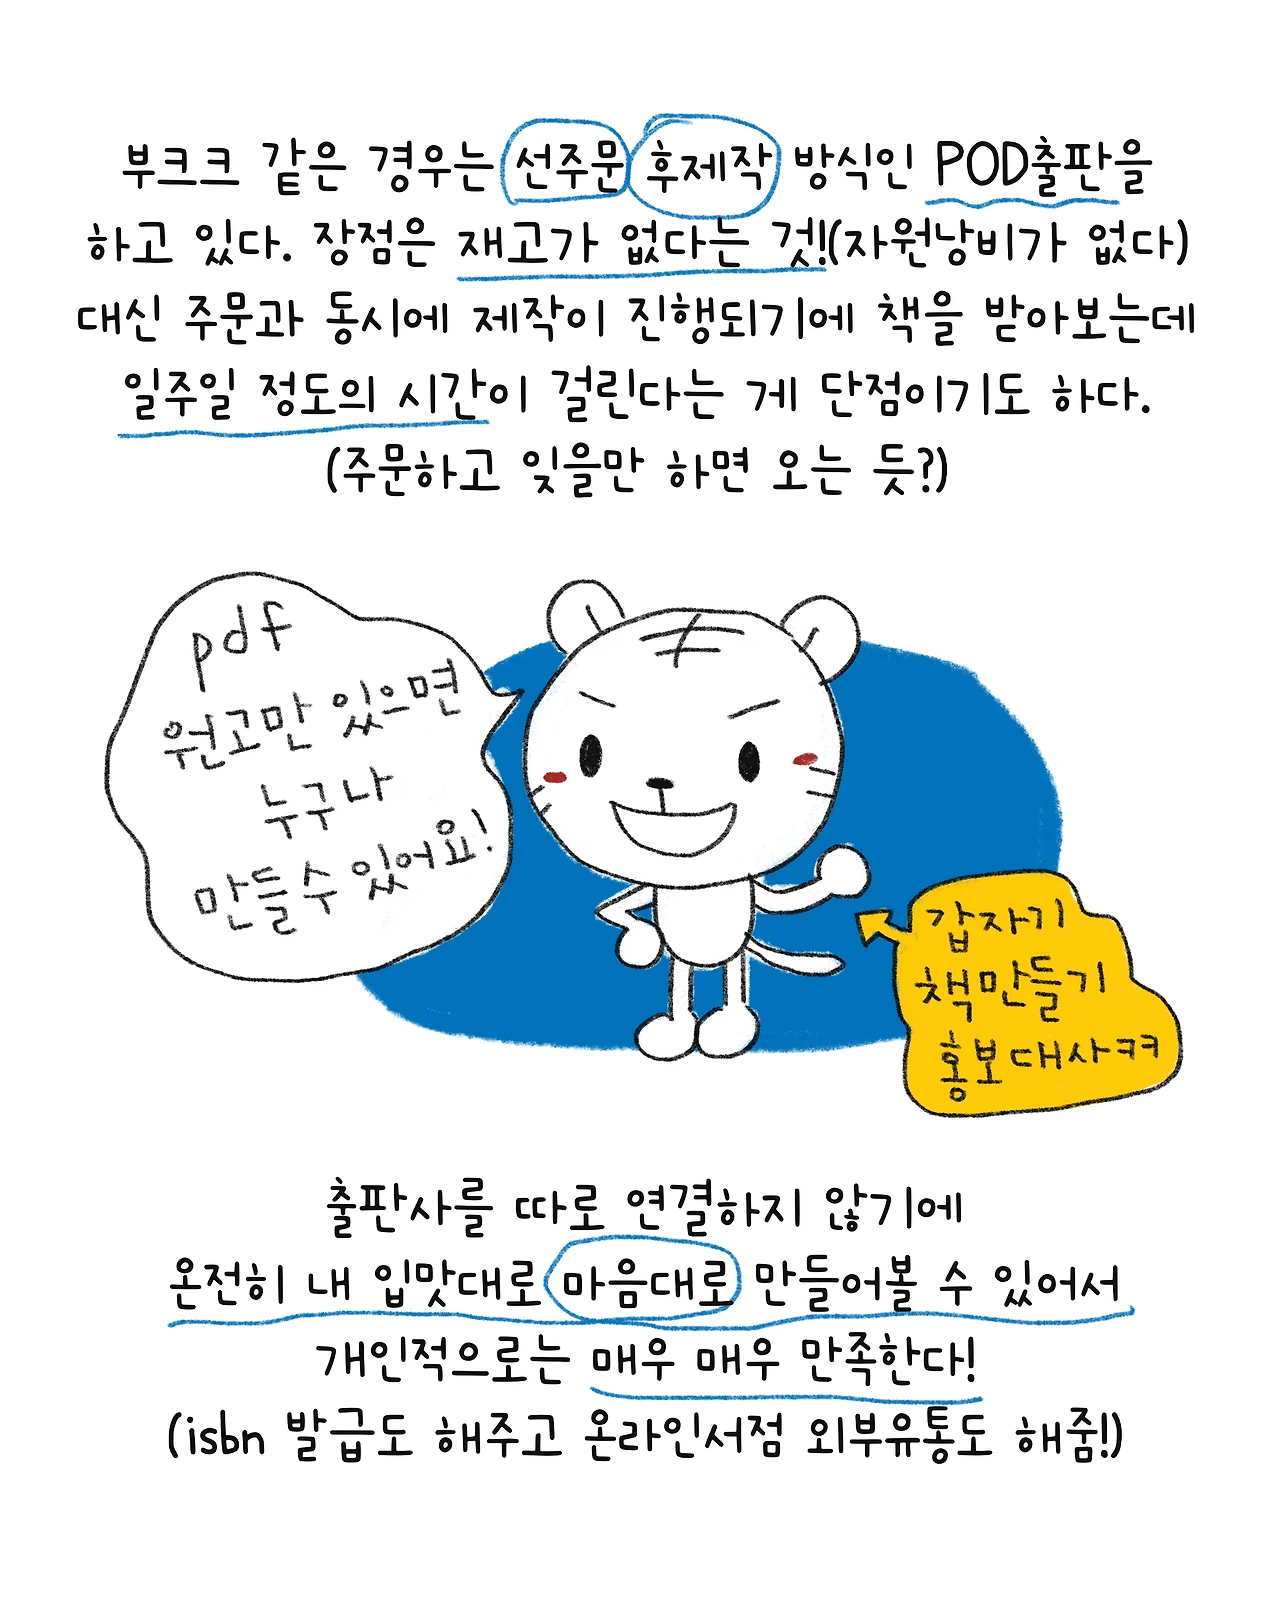 부크크 같은 경우는 선주문 후제작 방식인 POD출판을
하고 있다. 장점은 재고가 없다는 것!(자원낭비가 없다)
대신 주문과 동시에 제작이 진행되기에 책을 받아보는데
일주일 정도의 시간이 걸린다는 게 단점이기도 하다.
(주문하고 잊을만 하면 오는 듯?)
pdf
원고만 있으면
누구나
만들수 있어요!
갑자기
책만들기
홍보대사ㅋㅋ
출판사를 따로 연결하지 않기에
온전히 내 입맛대로 마음대로 만들어볼 수 있어서
개인적으로는 매우 매우 만족한다!
(isbn 발급도 해주고 온라인서점 외부유통도 해줌!)